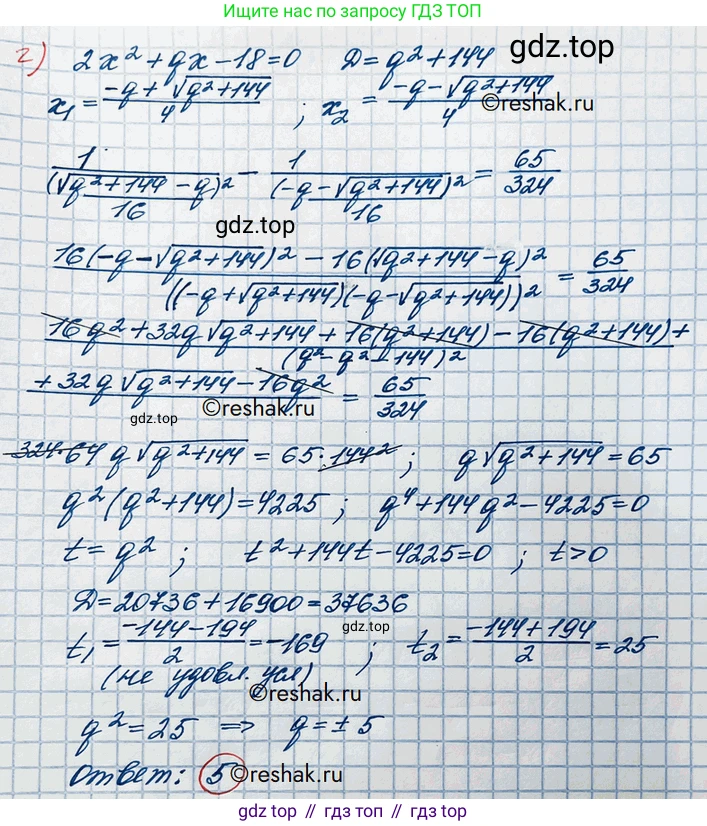 Ищите нас по запросу ГДЗ ТОП
г) 2x² + qx − 18 = 0   D = q² + 144
gdz.top
x₁ = (−q + √(q² + 144))/4 ; x₂ = (−q − √(q² + 144))/4
©reshak.ru
1/((√(q² + 144) − q)²/16) − 1/((−q − √(q² + 144))²/16) = 65/324
gdz.top
(16(−q − √(q² + 144))² − 16(√(q² + 144) − q)²)/((−q + √(q² + 144))(−q − √(q² + 144)))² = 65/324
16q² + 32q√(q² + 144) + 16(q² + 144) − 16(q² + 144) +
(q² − q² − 144)²
+ 32q√(q² + 144) − 16q² = 65/324
gdz.top ©reshak.ru
324·64 q√(q² + 144) = 65·144² ; q√(q² + 144) = 65
q²(q² + 144) = 4225 ; q⁴ + 144q² − 4225 = 0
t = q² ; t² + 144t − 4225 = 0 ; t > 0
D = 20736 + 16900 = 37636
t₁ = (−144 − 194)/2 = −169 ; t₂ = (−144 + 194)/2 = 25
gdz.top
(не удовл. усл)
©reshak.ru
q² = 25 ⇒ q = ± 5
Ответ: 5 ©reshak.ru
gdz top // гдз топ // gdz.top